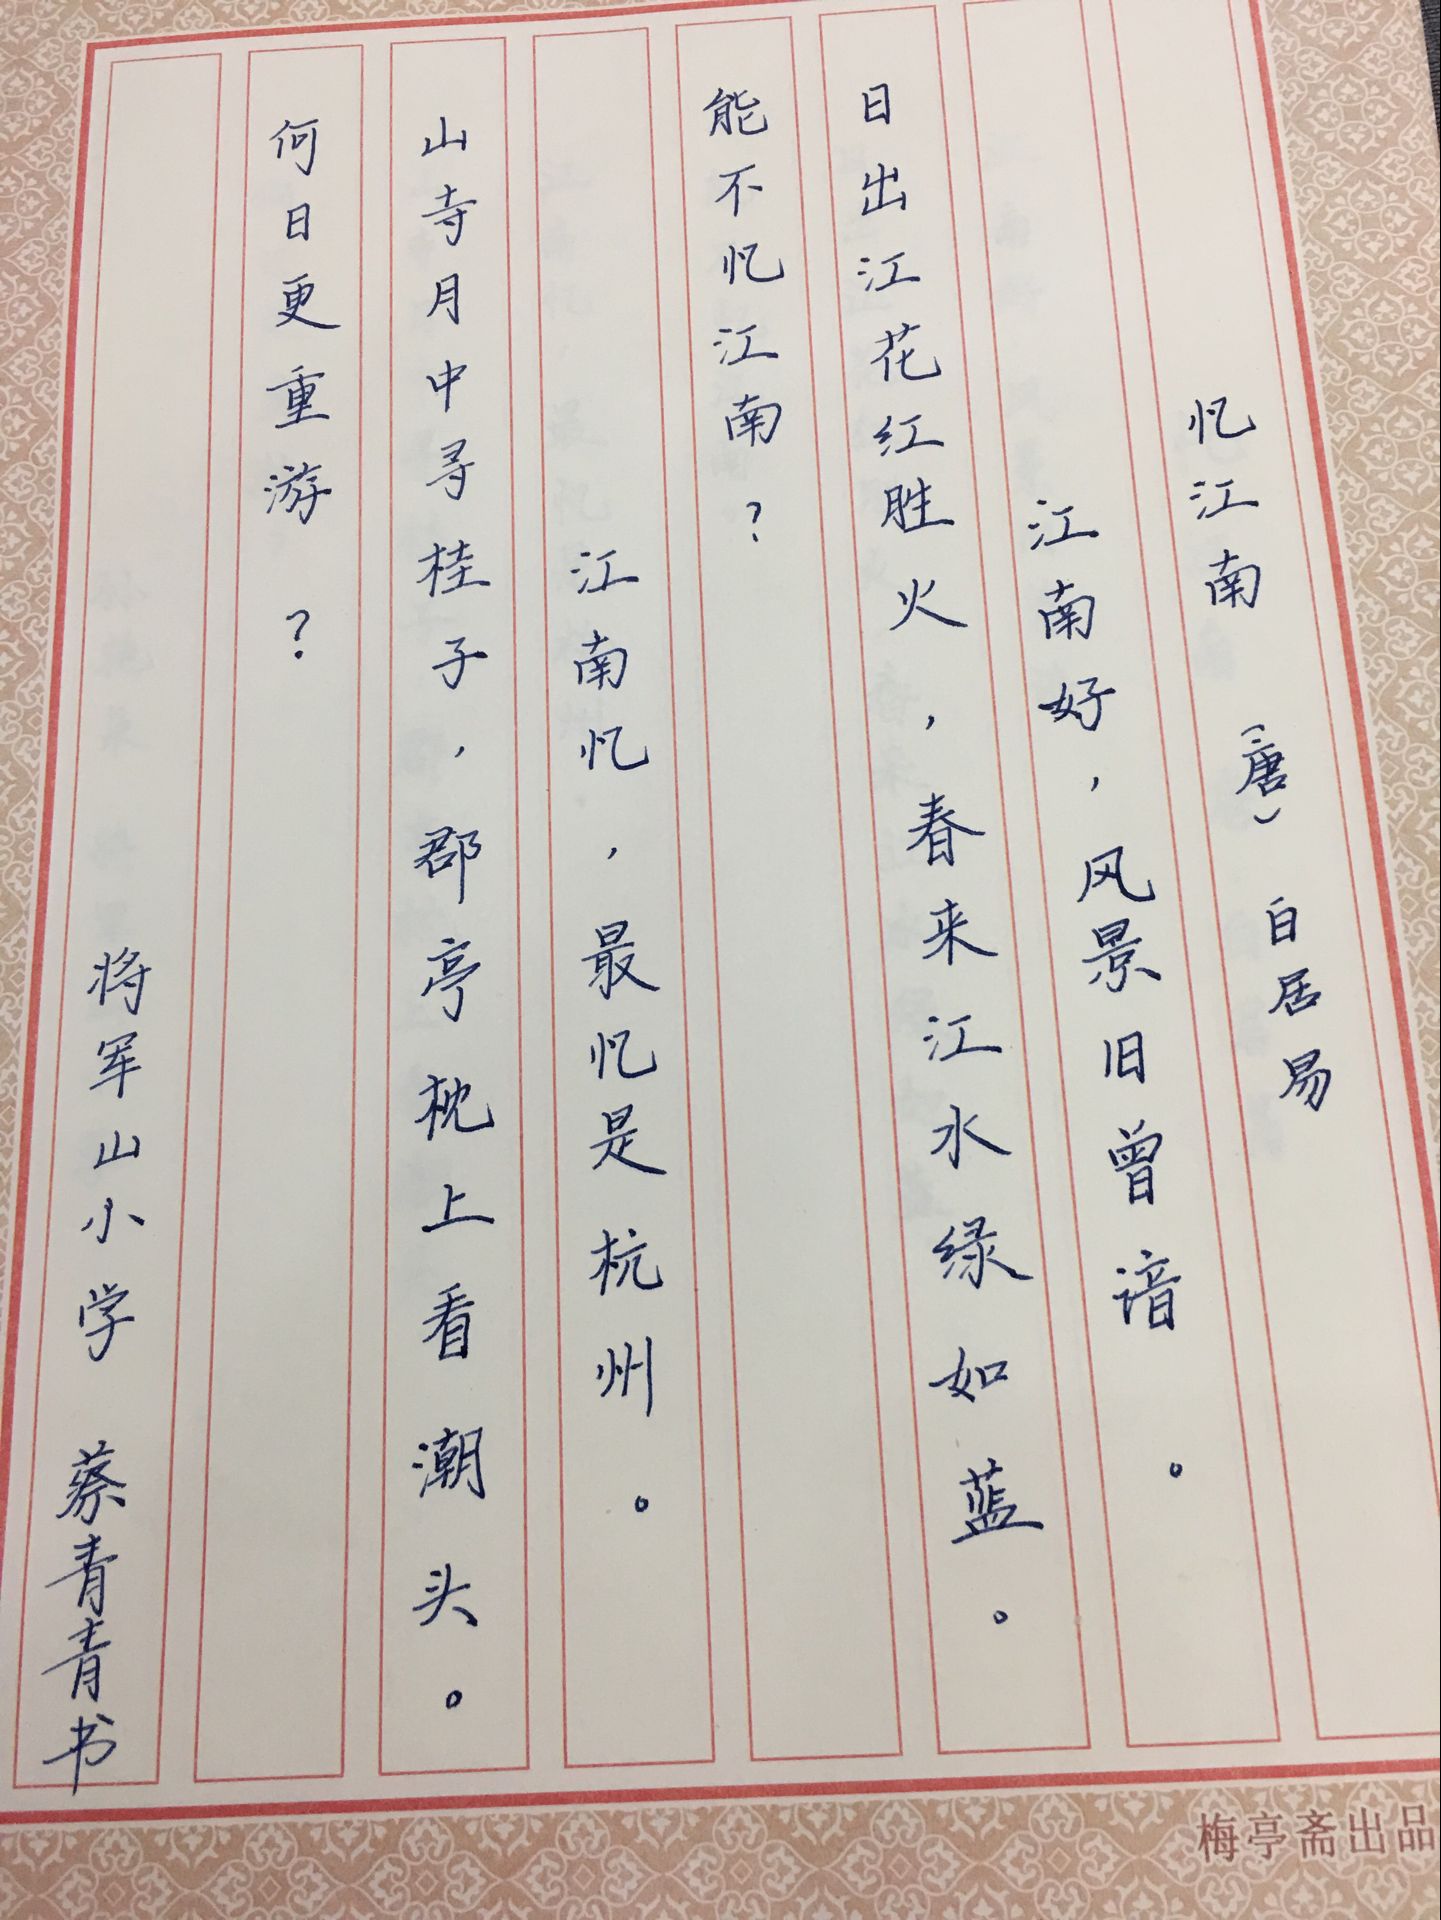 忆江南 （唐） 白居易
江南好，风景旧曾谙。
日出江花红胜火，春来江水绿如蓝。
能不忆江南？
江南忆，最忆是杭州。
山寺月中寻桂子，郡亭枕上看潮头。
何日更重游？
将军山小学 蔡青青书
梅亭斋出品